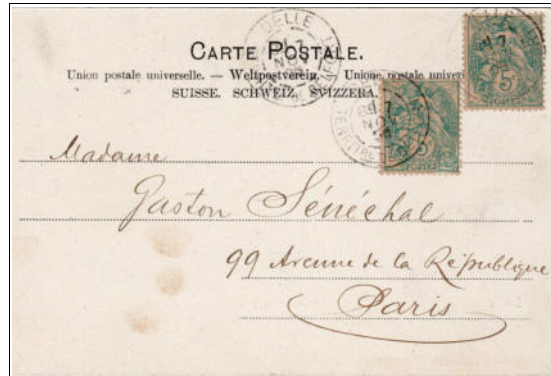 CARTE POSTALE.
Union postale universelle. — Weltpostverein. — Unione postale univer
SUISSE. SCHWEIZ. SVIZZERA.
DELLE
NOV
5
5
Madame
Gaston Sénéchal
99 Avenue de la République
Paris